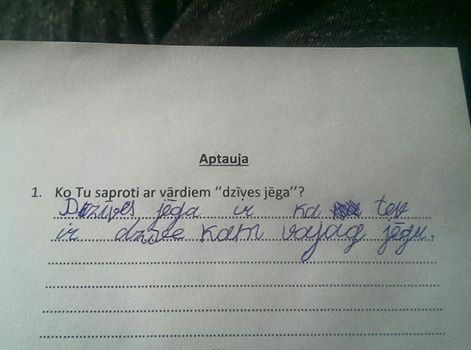 Aptauja
1. Ko Tu saproti ar vārdiem ‘‘dzīves jēga’’?
Dzīves jēga ir ka tev
ir dzīve kam vajag jēgu.